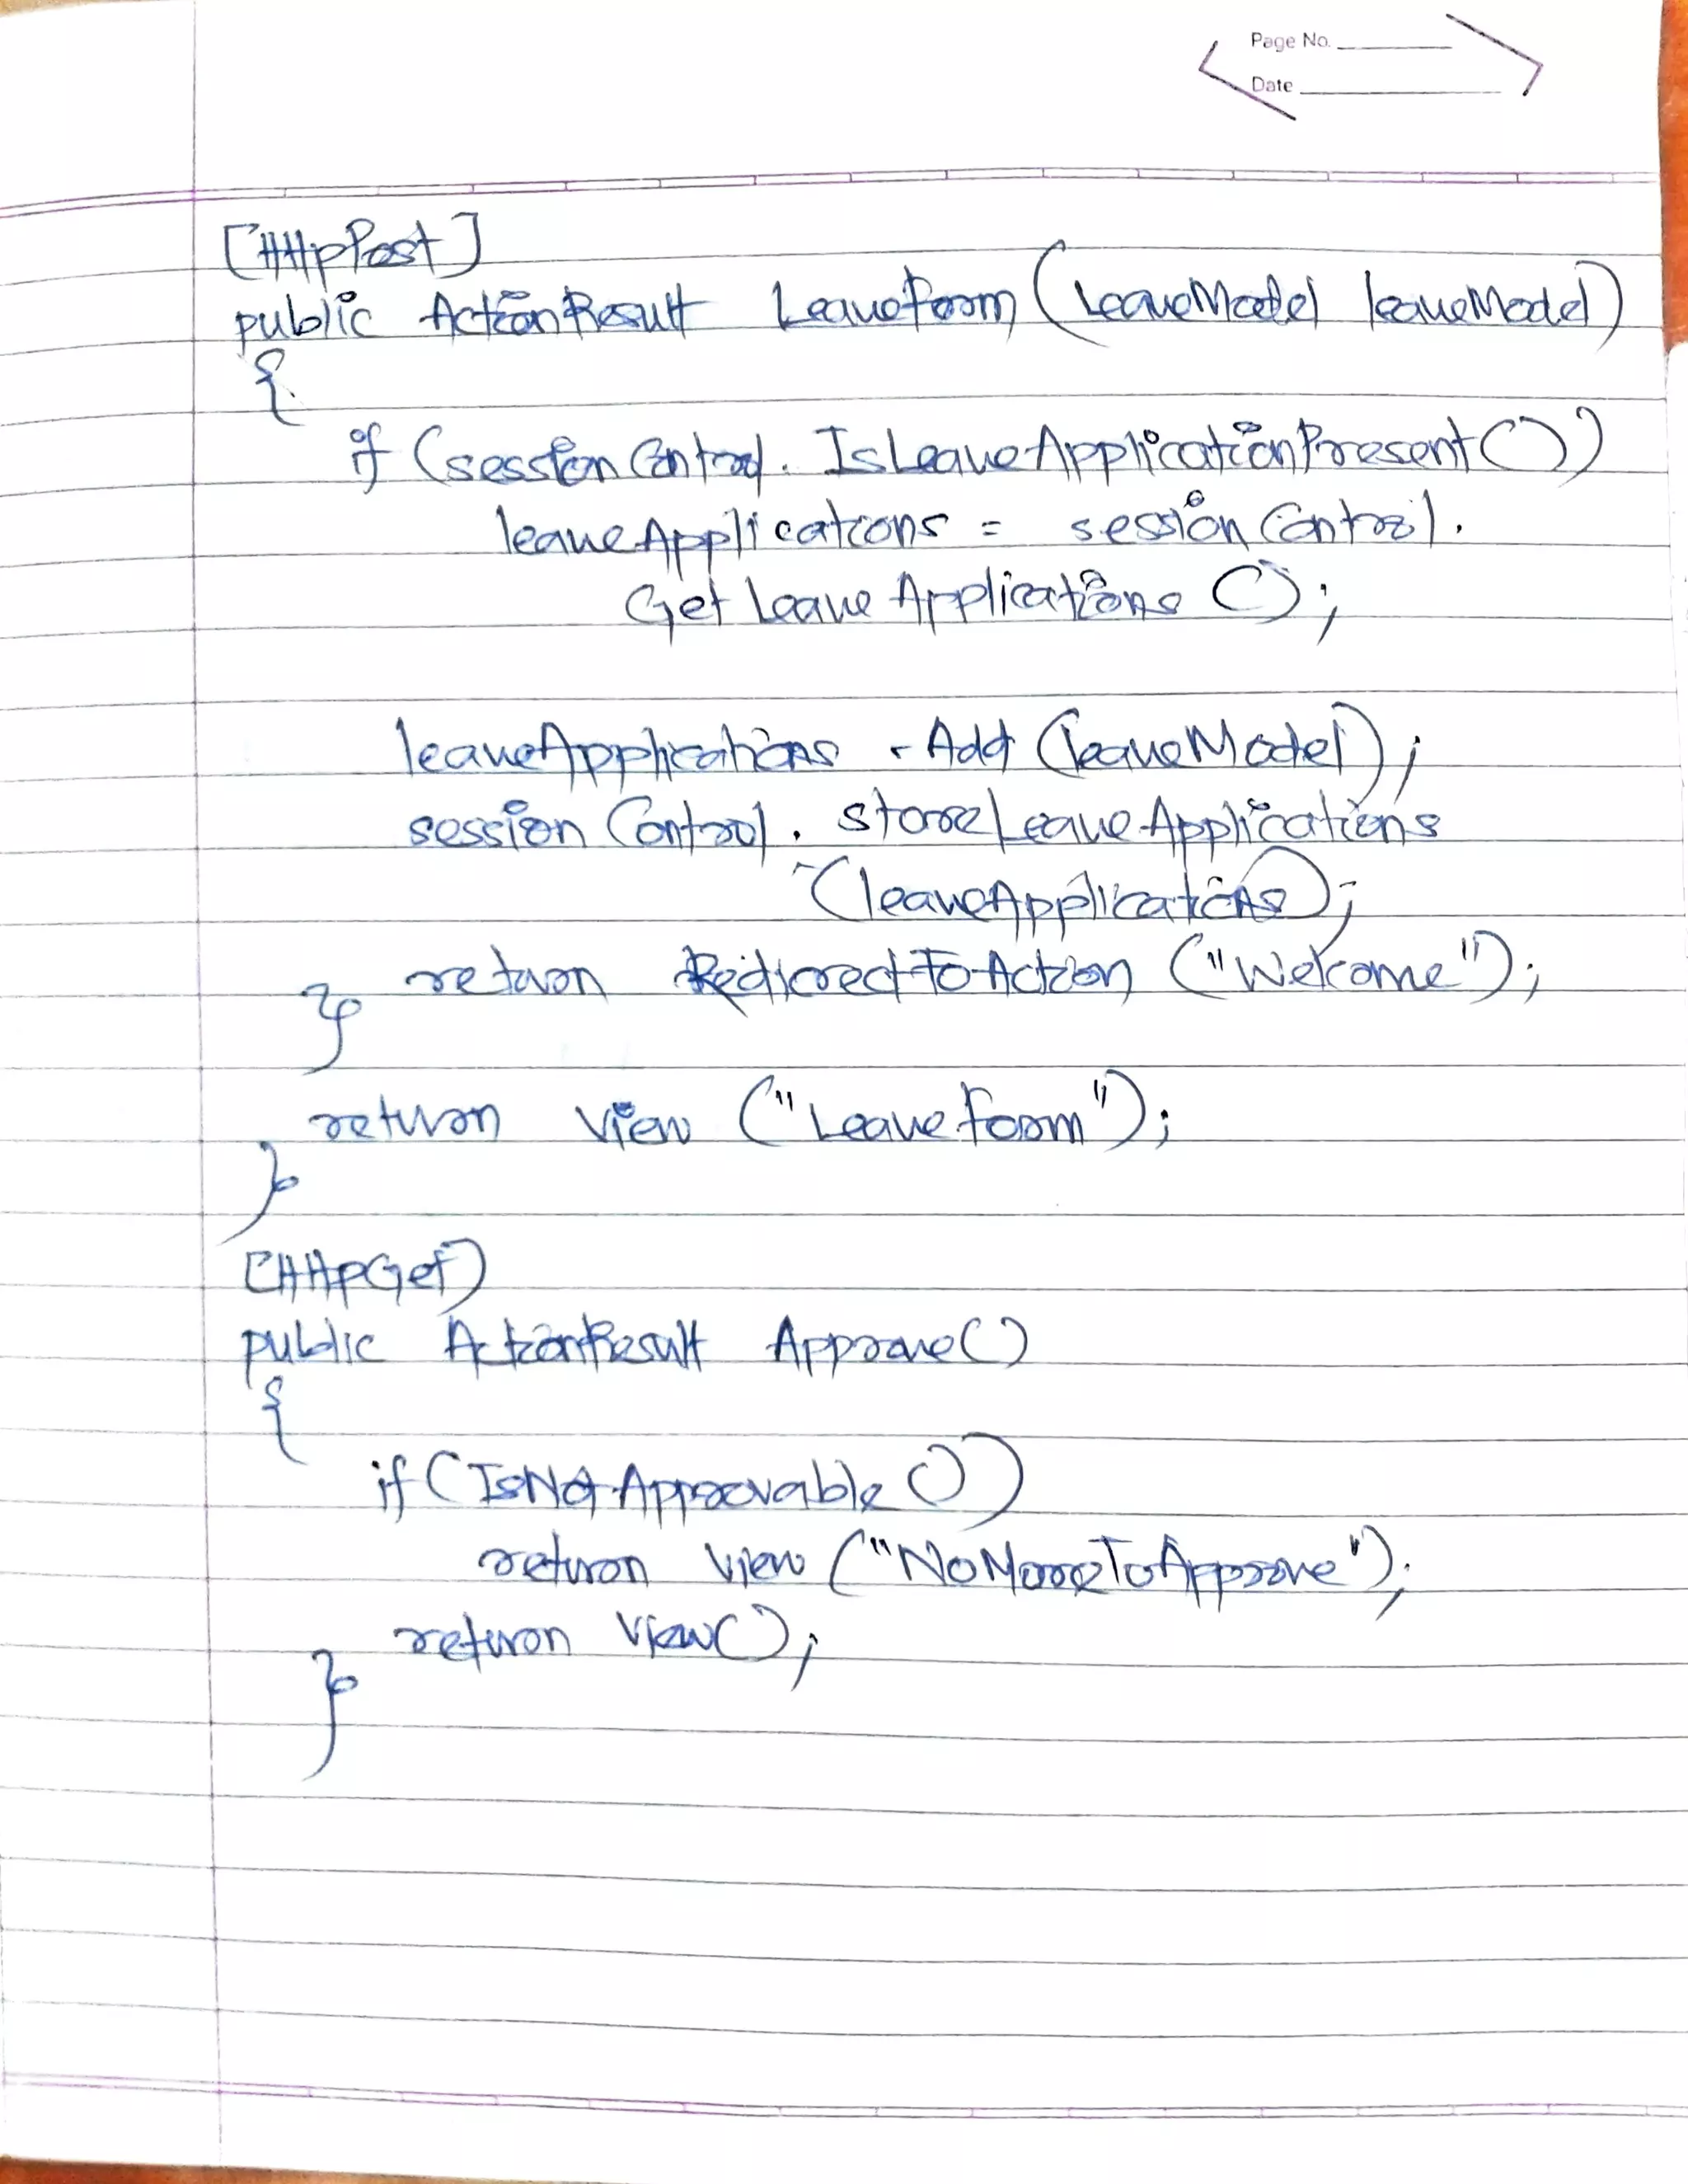 Page No.
Date
[HttpPost]
public ActionResult LeaveForm (LeaveModel leaveModel)
{
if (sessionControl. IsLeaveApplicationPresent())
leaveApplications = sessionControl.
GetLeaveApplications ();
leaveApplications .Add (leaveModel);
sessionControl. storeLeaveApplications
(leaveApplications);
return RedirectToAction ("Welcome");
}
return View ("LeaveForm");
}
[HttpGet]
public ActionResult Approve()
{
if (IsNotApprovable ())
return View ("NoMoreToApprove");
return View();
}